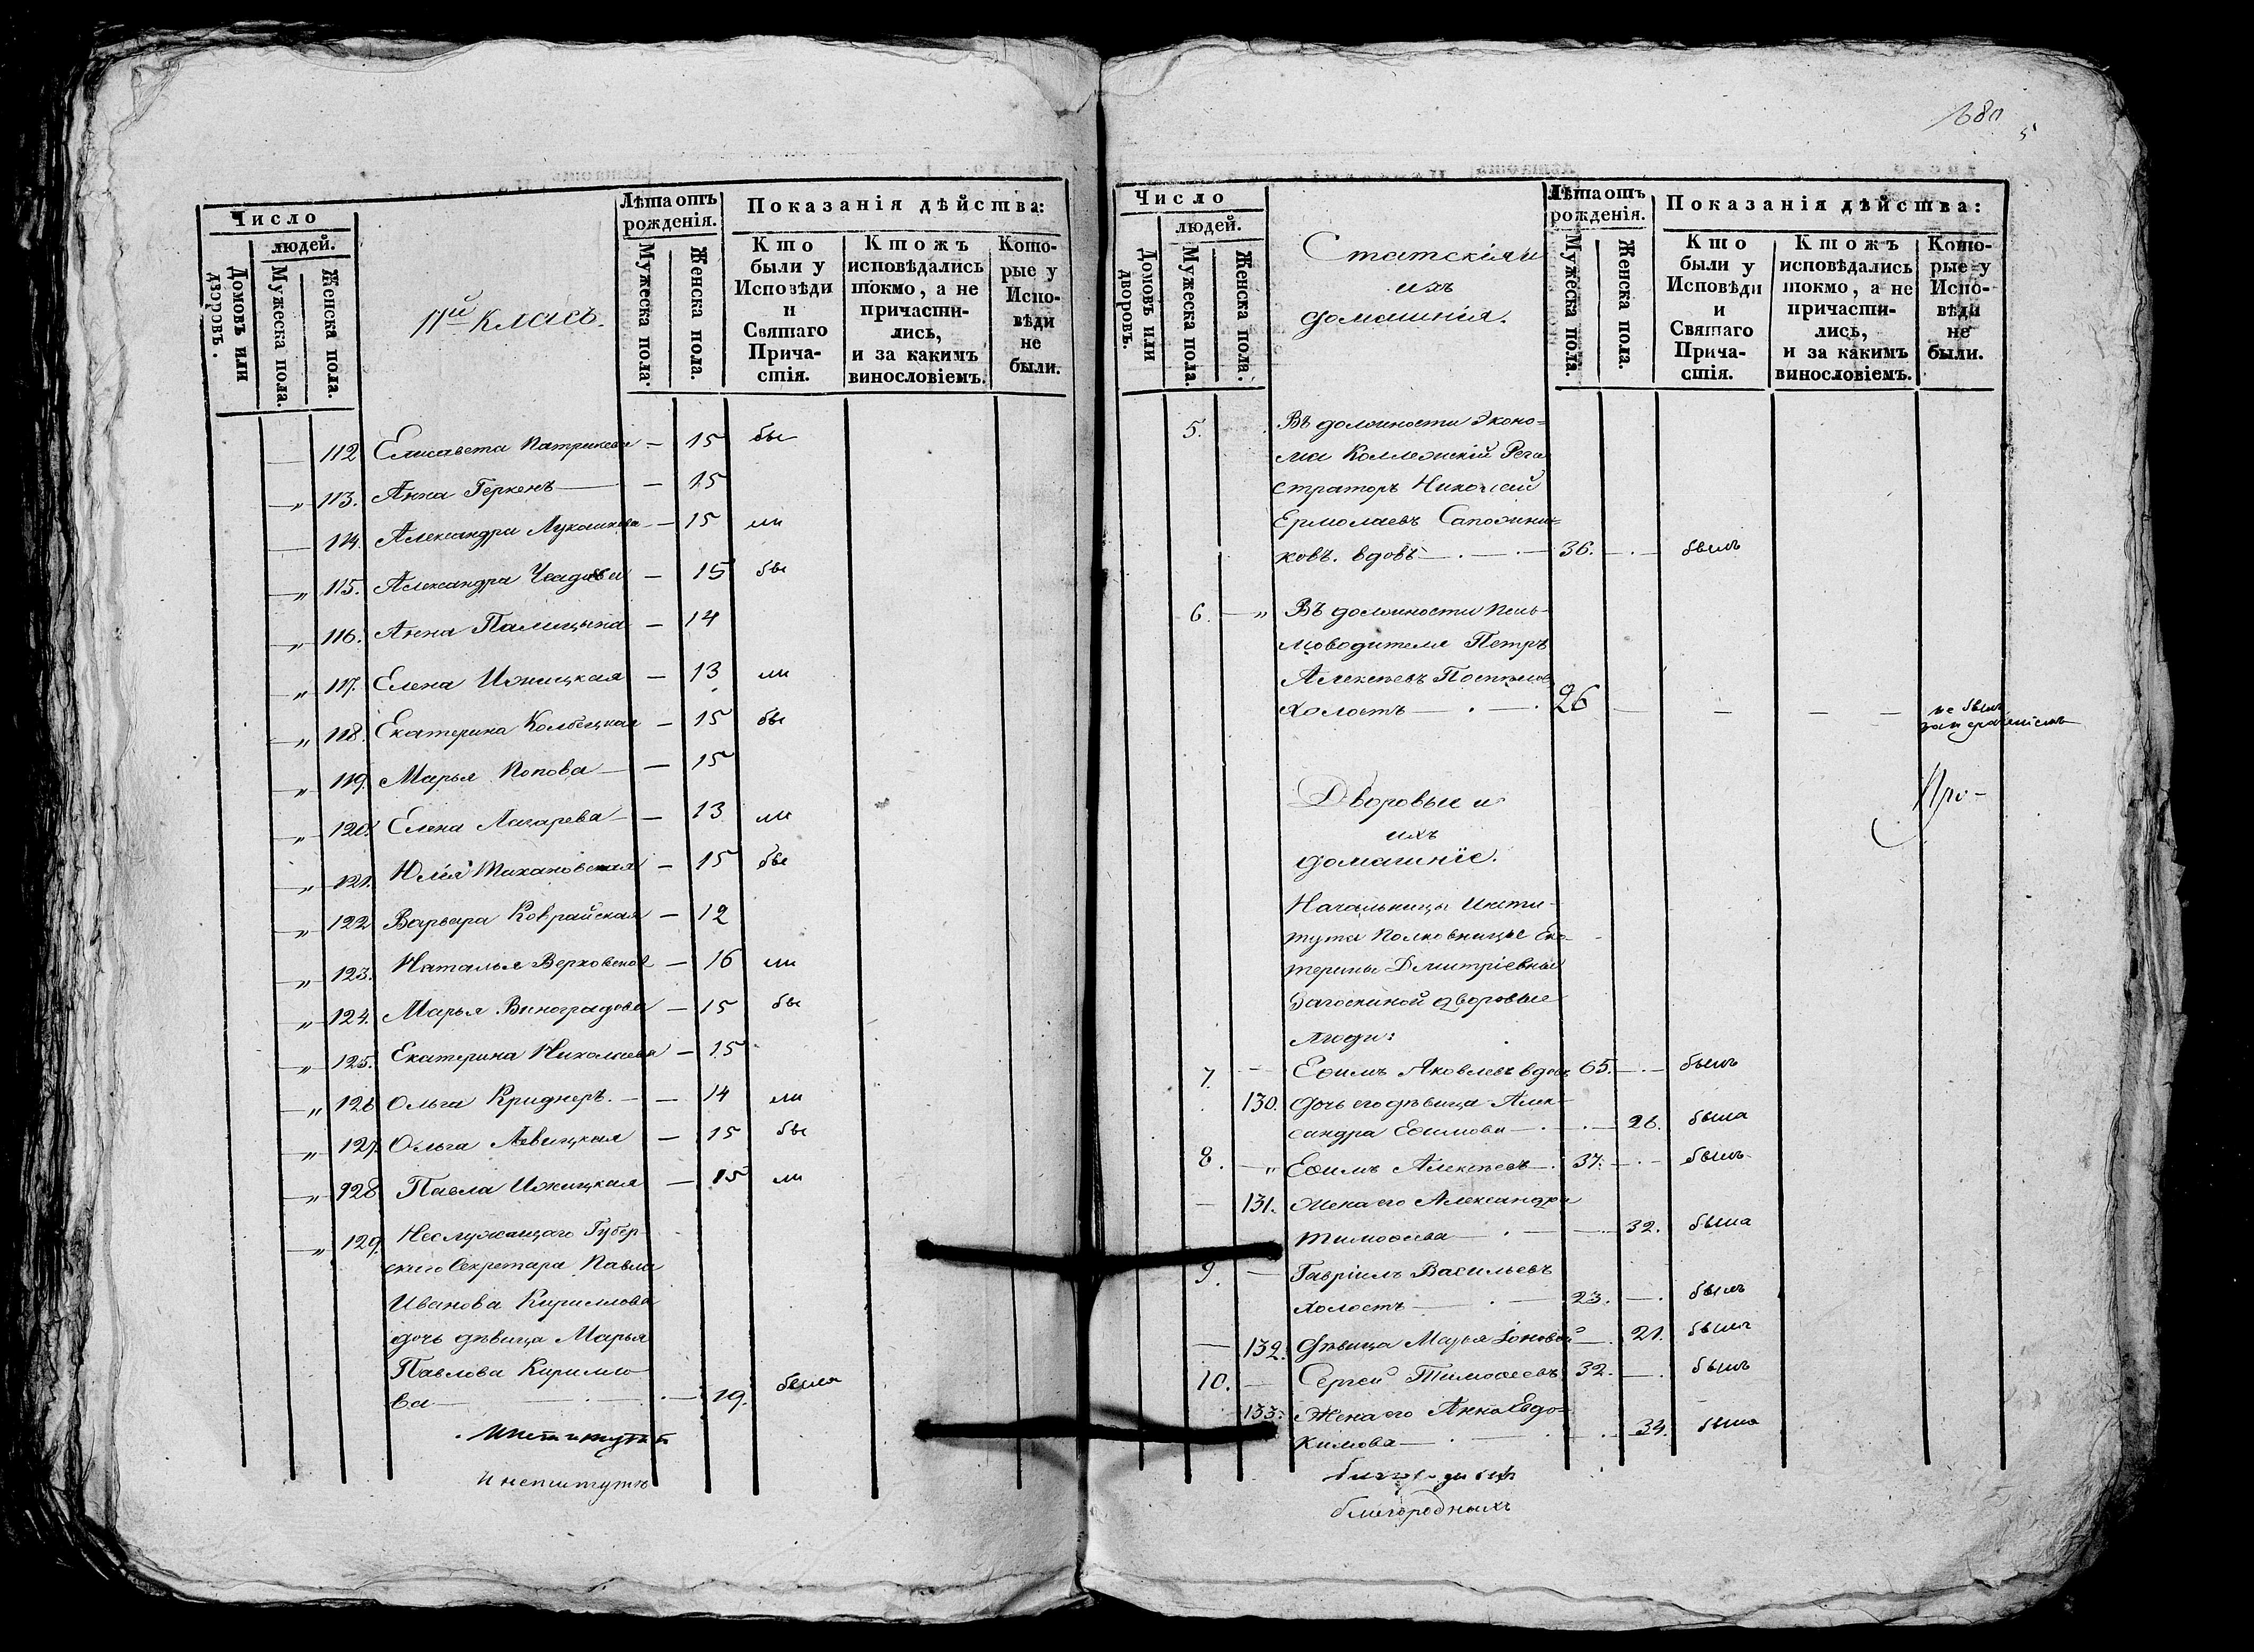 Число
людей.
Домовъ или дворовъ.
Мужеска пола.
Женска пола.
IIй класъ.
Лѣта отъ рожденія.
Мужеска пола.
Женска пола.
Показанія дѣйства:
Кто были у Исповѣди и Святаго Прича-стія.
Ктожъ исповѣдались токмо, а не причасти-лись, и за какимъ винословіемъ.
Кото-рые у Испо-вѣди не были.
112 Елисавета — 15 бы
„ 113. Анна Геркенъ — 15
114. Александра Лукашкова — 15 ли
„ 115. Александра — 15 бы
„ 116. Анна Палицына — 14
„ 117. Елена Ижицкая — 13 ли
„ 118. Екатерина Колбецкая — 15 бы
„ 119. Марья Попова — 15
„ 120. Елена Лазарева — 13 ли
„ 121. Юлія Тихановская — 15 бы
„ 122 Варвара Ковтрайская — 12
„ 123. Наталья Верховская — 16 ли
„ 124. Марья Виноградова — 15 бы
„ 125. Екатерина Николаева — 15
„ 126 Ольга Криднеръ. — 14 ли
„ 127. Ольга Левицкая — 15 бы
„ 128. Павла Ижицкая — 15 ли
„ 129. Неслужащаго Губер-
скаго Секретара Павла
Иванова Кирилова
дочь дѣвица Марья
Павлова Кирило-
ва — 19. была
Институтъ
680
5
Число
людей.
Домовъ или дворовъ.
Мужеска пола.
Женска пола.
Статскія и
ихъ
домашнія.
Лѣта отъ рожденія.
Мужеска пола.
Женска пола.
Показанія дѣйства:
Кто были у Исповѣди и Святаго Прича-стія.
Ктожъ исповѣдались токмо, а не причасти-лись, и за какимъ винословіемъ.
Кото-рые у Испо-вѣди не были.
5. Въ должности Эконо-
ма Коллежскій Реги
страторъ Николай
Ермолаевъ Сапожни-
ковъ. вдовъ — 36. — былъ
6. — „ Въ должности Пись-
моводителя Петръ
Алексѣевъ Поспѣлов
холостъ — 26 — не былъ
Дворовые и
ихъ
домашніе.
Про-
Начальницы Инсти-
тута Полковницы Ека-
терины Дмитріевны
Загоскиной дворовые
люди:
7. — Ефимъ Яковлевъ вдовъ 65. — былъ
130. дочь его дѣвица Алек-
сандра Ефимова — 26. была
8. — „ Ефимъ Алексѣевъ — 37. — былъ
— 131. Жена его Александра
Тимофеева — 32. была
9. — Гавріилъ Васильевъ
холостъ — 23. — былъ
— 132. дѣвица Марья Іонова — 21. была
10. — Сергей Тимофеевъ 32. — былъ
133. Жена его Анна Евдо-
кимова — 34. была
благородныхъ